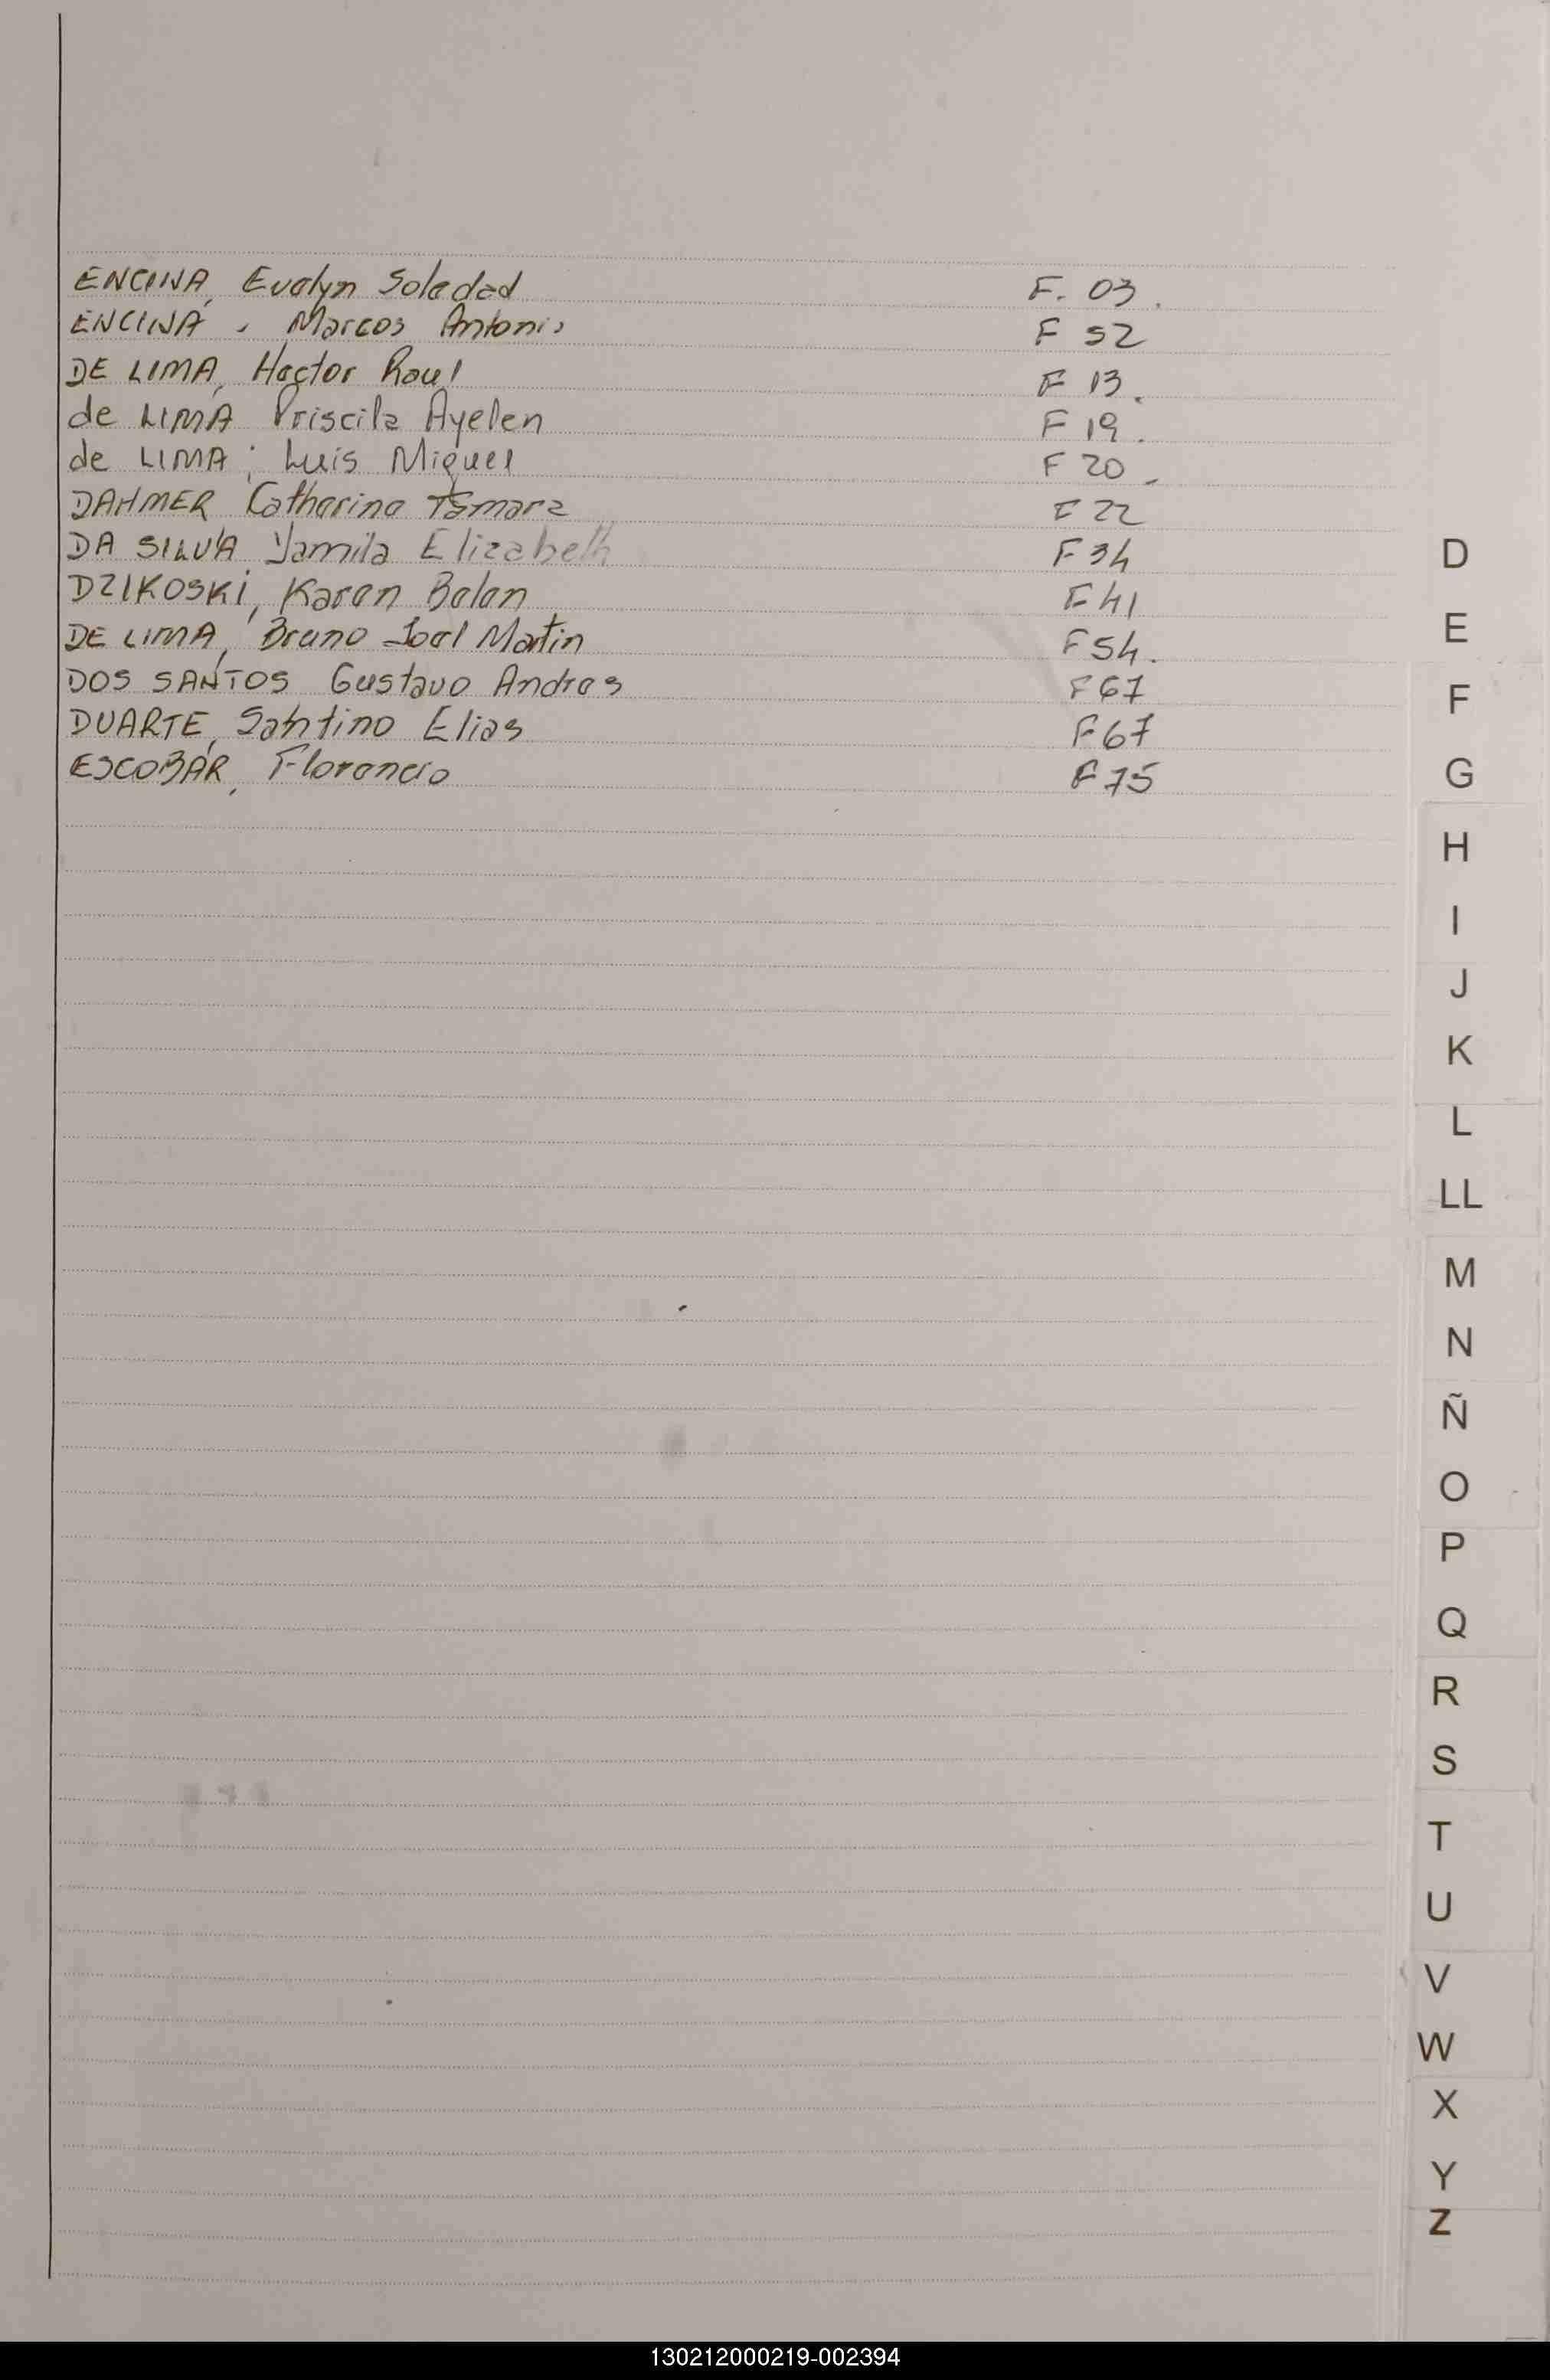 ENCINA, Evelyn Soledad F. 03.
ENCINA, Marcos Antonio F 52
DE LIMA, Hector Raul F 13.
de LIMA Priscila Ayelen F 19.
de LIMA, Luis Miguel F 20.
DAHMER Catherina Tamara F 22
DA SILVA Yamila Elizabeth F 34
DZIKOSKI, Karen Belen F 41
DE LIMA, Bruno Joel Martin F 54.
DOS SANTOS Gustavo Andres F 67
DUARTE, Santino Elias F 67
ESCOBAR, Florencio F 75
D
E
F
G
H
I
J
K
L
LL
M
N
Ñ
O
P
Q
R
S
T
U
V
W
X
Y
Z
130212000219-002394